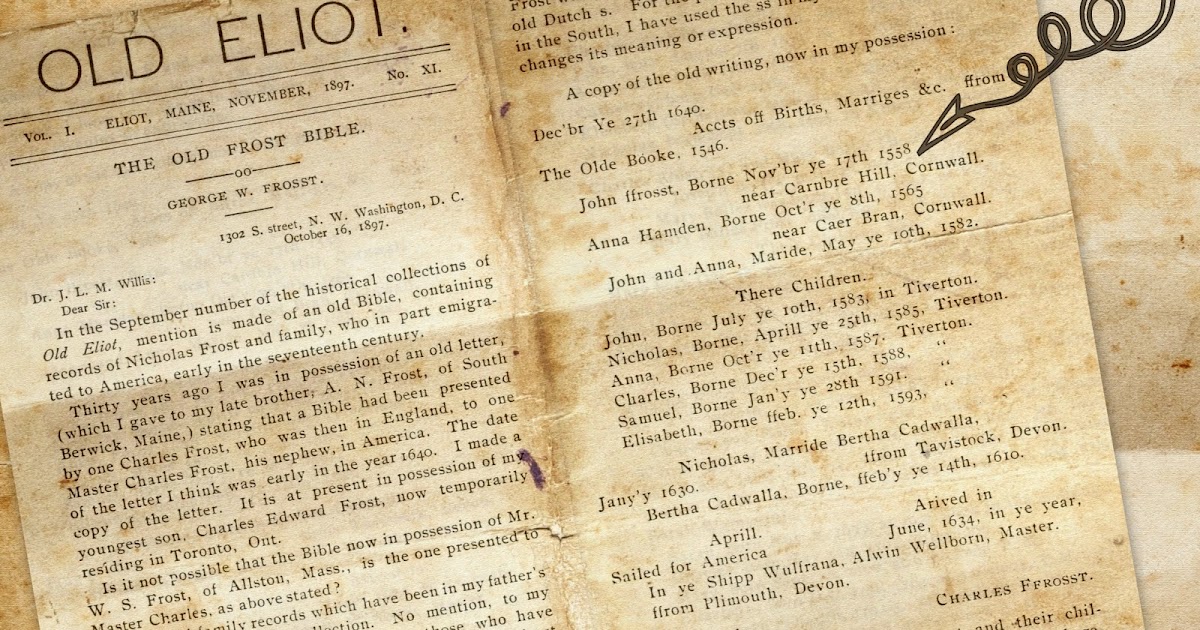 OLD ELIOT.
VOL. I. ELIOT, MAINE, NOVEMBER, 1897. No. XI.
THE OLD FROST BIBLE.
—oo—
GEORGE W. FROSST.
1302 S. street, N. W. Washington, D. C.
October 16, 1897.
Dr. J. L. M. Willis:
Dear Sir:
In the September number of the historical collections of
Old Eliot, mention is made of an old Bible, containing
records of Nicholas Frost and family, who in part emigra-
ted to America, early in the seventeenth century.
Thirty years ago I was in possession of an old letter,
(which I gave to my late brother, A. N. Frost, of South
Berwick, Maine,) stating that a Bible had been presented
by one Charles Frost, who was then in England, to one
Master Charles Frost, his nephew, in America. The date
of the letter I think was early in the year 1640. I made a
copy of the letter. It is at present in possession of my
youngest son, Charles Edward Frost, now temporarily
residing in Toronto, Ont.
Is it not possible that the Bible now in possession of Mr.
W. S. Frost, of Allston, Mass., is the one presented to
Master Charles, as above stated?
family records which have been in my father's
No mention, to my
those who have
Frost
old Dutch s. For the
in the South, I have used the ss in my
changes its meaning or expression.
A copy of the old writing, now in my possession:
Dec'br Ye 27th 1640.
Accts off Births, Marriges &c. ffrom
The Olde Booke, 1546.
John ffrosst, Borne Nov'br ye 17th 1558
near Carnbre Hill, Cornwall.
Anna Hamden, Borne Oct'r ye 8th, 1565
near Caer Bran, Cornwall.
John and Anna, Maride, May ye 10th, 1582.
There Children.
John, Borne July ye 10th, 1583, in Tiverton.
Nicholas, Borne, Aprill ye 25th, 1585, Tiverton.
Anna, Borne Oct'r ye 11th, 1587. Tiverton.
Charles, Borne Dec'r ye 15th, 1588, “
Samuel, Borne Jan'y ye 28th 1591. “
Elisabeth, Borne ffeb. ye 12th, 1593, “
Nicholas, Marride Bertha Cadwalla,
ffrom Tavistock, Devon.
Jany'y 1630.
Bertha Cadwalla, Borne, ffeb'y ye 14th, 1610.
Aprill. Arived in
Sailed for America June, 1634, in ye year,
In ye Shipp Wulfrana, Alwin Wellborn, Master.
ffrom Plimouth, Devon.
CHARLES FFROSST.
and their chil-